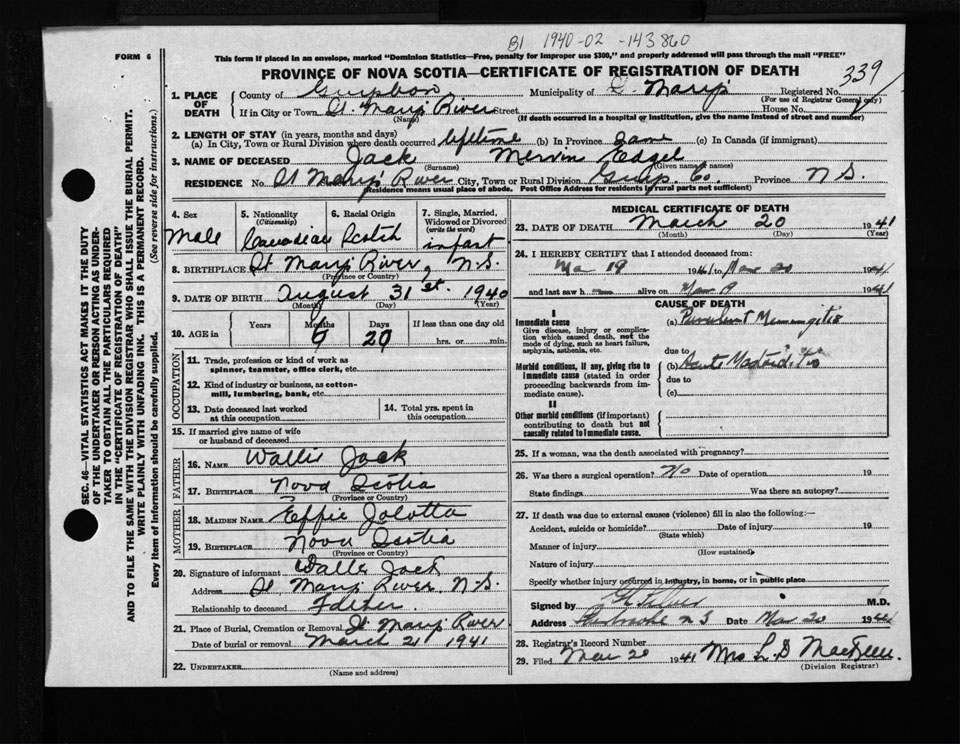 B1 1940-02-143860
FORM 6
This form if placed in an envelope, marked "Dominion Statistics—Free, penalty for improper use $300," and properly addressed will pass through the mail "FREE"
PROVINCE OF NOVA SCOTIA—CERTIFICATE OF REGISTRATION OF DEATH
339
1. PLACE OF DEATH
County of Municipality of St. Mary's Registered No.
(For use of Registrar General only)
If in City or Town St. Mary's River Street House No.
(Name) (If death occurred in a hospital or institution, give the name instead of street and number)
2. LENGTH OF STAY (in years, months and days)
(a) In City, Town or Rural Division where death occurred lifetime (b) In Province Same (c) In Canada (if immigrant)
3. NAME OF DECEASED Jack Mervin Edgel
(Surname) (Given name or names)
RESIDENCE No. St Mary's River City, Town or Rural Division Guys. Co. Province N S.
(Residence means usual place of abode. Post Office Address for residents in rural parts not sufficient)
4. Sex Male
5. Nationality (Citizenship) Canadian
6. Racial Origin Scotch
7. Single, Married, Widowed or Divorced (write the word) infant
8. BIRTHPLACE St Mary's River, N.S.
(Province or Country)
9. DATE OF BIRTH August 31st. 1940
(Month) (Day) (Year)
10. AGE in Years Months Days If less than one day old
6 20 hrs. or min.
OCCUPATION
11. Trade, profession or kind of work as spinner, teamster, office clerk, etc.
12. Kind of industry or business, as cotton-mill, lumbering, bank, etc.
13. Date deceased last worked at this occupation
14. Total yrs. spent in this occupation
15. If married give name of wife or husband of deceased
FATHER
16. NAME Wallis Jack
17. BIRTHPLACE Nova Scotia
(Province or Country)
MOTHER
18. MAIDEN NAME Effie Jolotta
19. BIRTHPLACE Nova Scotia
(Province or Country)
20. Signature of informant Jack
Address St Mary's River. N.S.
Relationship to deceased Father.
21. Place of Burial, Cremation or Removal St Mary's River
Date of burial or removal March 21 1941
22. UNDERTAKER
(Name and address)
MEDICAL CERTIFICATE OF DEATH
23. DATE OF DEATH March 20 1941
(Month) (Day) (Year)
24. I HEREBY CERTIFY that I attended deceased from:
Ma 19 1941 to Mar 20 1941
and last saw h alive on Mar 19 1941
CAUSE OF DEATH
I
Immediate cause
Give disease, injury or complication which caused death, not the mode of dying, such as heart failure, asphyxia, asthenia, etc.
(a) Purulent Meningitis
due to
Morbid conditions, if any, giving rise to immediate cause (stated in order proceeding backwards from immediate cause).
(b) Acute Mastoiditis
due to
(c)
II
Other morbid conditions (if important) contributing to death but not causally related to immediate cause.
25. If a woman, was the death associated with pregnancy?
26. Was there a surgical operation? No Date of operation 19
State findings Was there an autopsy?
27. If death was due to external causes (violence) fill in also the following:—
Accident, suicide or homicide? Date of injury 19
(State which)
Manner of injury
(How sustained)
Nature of injury
Specify whether injury occurred in industry, in home, or in public place
Signed by M.D.
Address N S Date Mar 20 1941
28. Registrar's Record Number
29. Filed Mar 20 1941 Mrs L. D
(Division Registrar)
SEC. 46—VITAL STATISTICS ACT MAKES IT THE DUTY
OF THE UNDERTAKER OR PERSON ACTING AS UNDER-
TAKER TO OBTAIN ALL THE PARTICULARS REQUIRED
IN THE "CERTIFICATE OF REGISTRATION OF DEATH"
AND TO FILE THE SAME WITH THE DIVISION REGISTRAR WHO SHALL ISSUE THE BURIAL PERMIT.
WRITE PLAINLY WITH UNFADING INK. THIS IS A PERMANENT RECORD.
Every item of information should be carefully supplied. (See reverse side for instructions.)